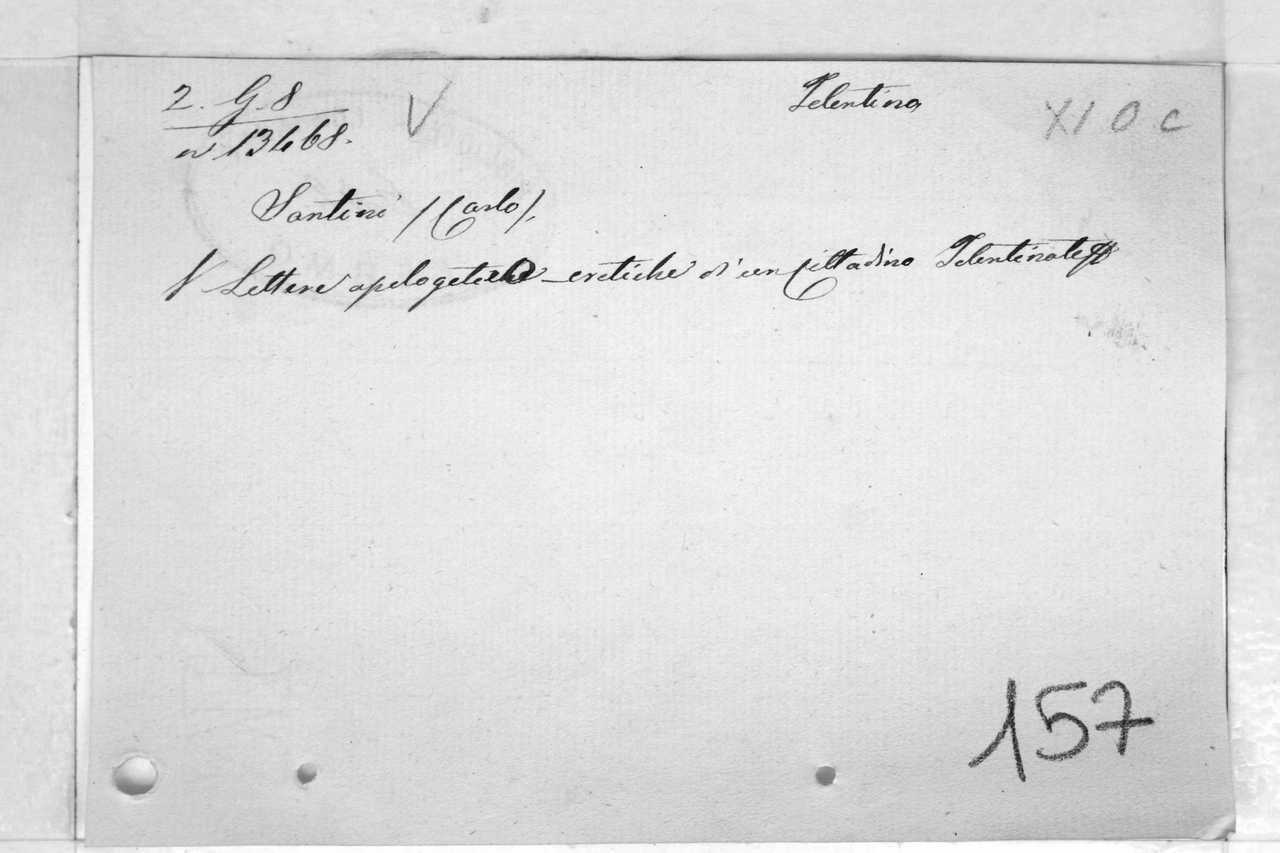 2. G. 8
V
Tolentino
XI 0 c
n 13468.
Santini (Carlo).
V Lettere apologetiche-critiche d'un Cittadino Tolentinate
157